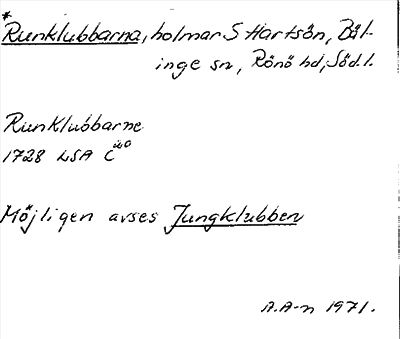 *
Runklubbarna, holmar S Hartsön, Bäl-
inge sn, Rönö hd, Södl.
Runklubbarne
1728 LSA C
Möjligen avses Jungklubben
A.A-n 1971.